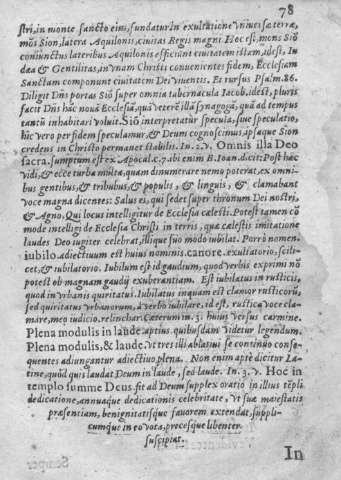 78
stri, in monte sancto eius, fundatur in exultatione vniuersæ terræ,
mõs Sion, latera Aquilonis, ciuitas Regis magni. Hoc est, mons Siõ
coniunctus lateribus Aquilonis efficiunt ciuitatem istam, idest, Iu
dæa & Gentilitas, in vnam Christi conuenientes fidem, Ecclesiam
Sanctam componunt ciuitatem Dei viuentis. Et rursus Psalm. 86.
Diligit Dñs portas Siõ super omnia tabernacula Iacob. idest, pluris
facit Dñs hãc nouã Ecclesiã, quã veterẽ illã synagogã, quã ad tempus
tantũ inhabitari voluit. Siõ interpretatur specula, siue speculatio,
hic vero per fidem speculamur, & Deum cognoscimus, ipsaque Sion
credens in Christo permanet stabilis. In .2. v. Omnis illa Deo
sacra. sumptum est ex Apocal. c. 7. abi enim B. Ioan. dicit: Post hæc
vidi, & ecce turba multa, quam dinumerare nemo poterat, ex omni-
bus gentibus, & tribubus, & populis, & linguis, & clamabant
voce magna dicentes: Salus ei, qui sedet super thronum Dei nostri,
& Agno, Qui locus intelligitur de Ecclesia cælesti. Potest tamen cõ
mode intelligi de Ecclesia Christi in terris, qua cælestis imitatione
laudes Deo iugiter celebrat, illique suo modo iubilat. Porrò nomen.
iubilo adiectiuum est huius nominis. canore. exultatorio, scili-
cet, & iubilatorio. Iubilum est id gaudium, quod verbis exprimi nõ
potest ob magnam gaudij exuberantiam. Est iubilatus in rusticis,
quod in vrbanis quiritatus. Iubilatus inquam est clamor rusticorũ,
sed quiritatus vrbanorum, à verbo iubilare, id est, rustica voce cla-
mare, meo iudicio, relinchar. Cæterum in .3. huius versus carmine.
Plena modulis in laude. aptius. quibusdam videtur legendum.
Plena modulis, & laude. vt tres illi ablatiui se continuo conse-
quentes adiungantur adiectiuo plena. Non enim aptè dicitur La-
tine, quòd quis laudat Deum in laude, sed laude. In .3. v. Hoc in
templo summe Deus. fit ad Deum supplex oratio in illius tẽpli
dedicatione, annuaque dedicationis celebritate, vt sua maiestatis
præsentiam, benignitatisque fauorem extendat, suppli-
cumque in eo vota, precesque libenter
suscipiat.
In